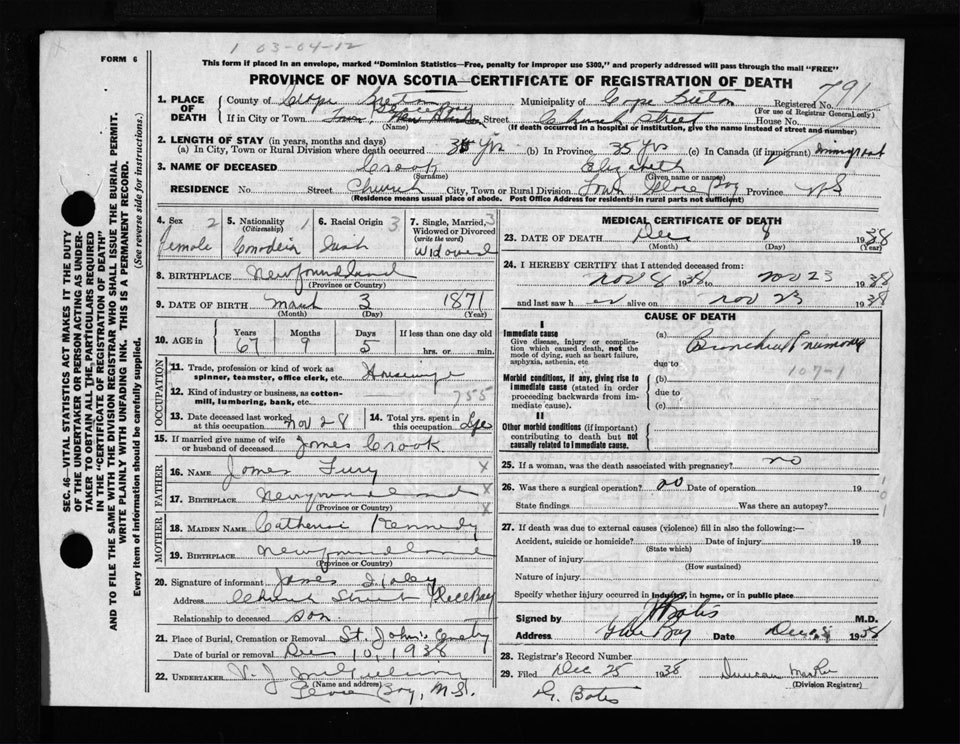 1 03-04-12
FORM 6
This form if placed in an envelope, marked "Dominion Statistics—Free, penalty for improper use $300," and properly addressed will pass through the mail "FREE"
PROVINCE OF NOVA SCOTIA—CERTIFICATE OF REGISTRATION OF DEATH
791
1. PLACE OF DEATH County of Cape Breton Municipality of Cape Breton Registered No.
(For use of Registrar General only)
If in City or Town Town Glace Bay Street Church Street House No.
(Name) (If death occurred in a hospital or institution, give the name instead of street and number)
2. LENGTH OF STAY (in years, months and days)
(a) In City, Town or Rural Division where death occurred 35 yrs (b) In Province 35 yrs (c) In Canada (if immigrant) Immigrant
3. NAME OF DECEASED Crook Elizabeth
(Surname) (Given name or names)
RESIDENCE No. Street Church City, Town or Rural Division Town Glace Bay Province NS
(Residence means usual place of abode. Post Office Address for residents in rural parts not sufficient)
4. Sex 2 5. Nationality 1 6. Racial Origin 3 7. Single, Married, 3
(Citizenship) Widowed or Divorced
(write the word)
Female Canadian Irish Widowed
8. BIRTHPLACE Newfoundland
(Province or Country)
9. DATE OF BIRTH March 3 1871
(Month) (Day) (Year)
10. AGE in Years Months Days If less than one day old
67 9 5 hrs. or min.
OCCUPATION
11. Trade, profession or kind of work as
spinner, teamster, office clerk, etc. Housewife
12. Kind of industry or business, as cotton-
mill, lumbering, bank, etc. 755
13. Date deceased last worked 14. Total yrs. spent in
at this occupation Nov 28 this occupation Life
15. If married give name of wife
or husband of deceased James Crook
FATHER
16. NAME James Fury X
17. BIRTHPLACE Newfoundland X
(Province or Country) X
MOTHER
18. MAIDEN NAME Catherine Kennedy
19. BIRTHPLACE Newfoundland
(Province or Country)
20. Signature of informant James
Address Church Street Glace Bay
Relationship to deceased son
21. Place of Burial, Cremation or Removal St. John's Cemetry
Date of burial or removal Dec 10, 1938
22. UNDERTAKER V. J.
(Name and address)
Glace Bay, N.S.
MEDICAL CERTIFICATE OF DEATH
23. DATE OF DEATH Dec 8 1938
(Month) (Day) (Year)
24. I HEREBY CERTIFY that I attended deceased from:
Nov 8 1938 to Nov 23 1938
and last saw h er alive on Nov 23 1938
CAUSE OF DEATH
I
Immediate cause
Give disease, injury or complica-
tion which caused death, not the
mode of dying, such as heart failure,
asphyxia, asthenia, etc.
(a) Bronchial Pneumonia
107-1
due to
Morbid conditions, if any, giving rise to
immediate cause (stated in order
proceeding backwards from im-
mediate cause).
(b)
due to
(c)
II
Other morbid conditions (if important)
contributing to death but not
causally related to immediate cause.
25. If a woman, was the death associated with pregnancy? no
26. Was there a surgical operation? no Date of operation 19
State findings Was there an autopsy?
27. If death was due to external causes (violence) fill in also the following:—
Accident, suicide or homicide? Date of injury 19
(State which)
Manner of injury
(How sustained)
Nature of injury
Specify whether injury occurred in industry, in home, or in public place
Signed by M.D.
Address Glace Bay Date Dec 8 1938
28. Registrar's Record Number
29. Filed Dec 25 1938 Duncan
(Division Registrar)
G. Bates
SEC. 46—VITAL STATISTICS ACT MAKES IT THE DUTY
OF THE UNDERTAKER OR PERSON ACTING AS UNDER-
TAKER TO OBTAIN ALL THE PARTICULARS REQUIRED
IN THE "CERTIFICATE OF REGISTRATION OF DEATH"
AND TO FILE THE SAME WITH THE DIVISION REGISTRAR WHO SHALL ISSUE THE BURIAL PERMIT.
WRITE PLAINLY WITH UNFADING INK. THIS IS A PERMANENT RECORD.
Every item of information should be carefully supplied. (See reverse side for instructions.)